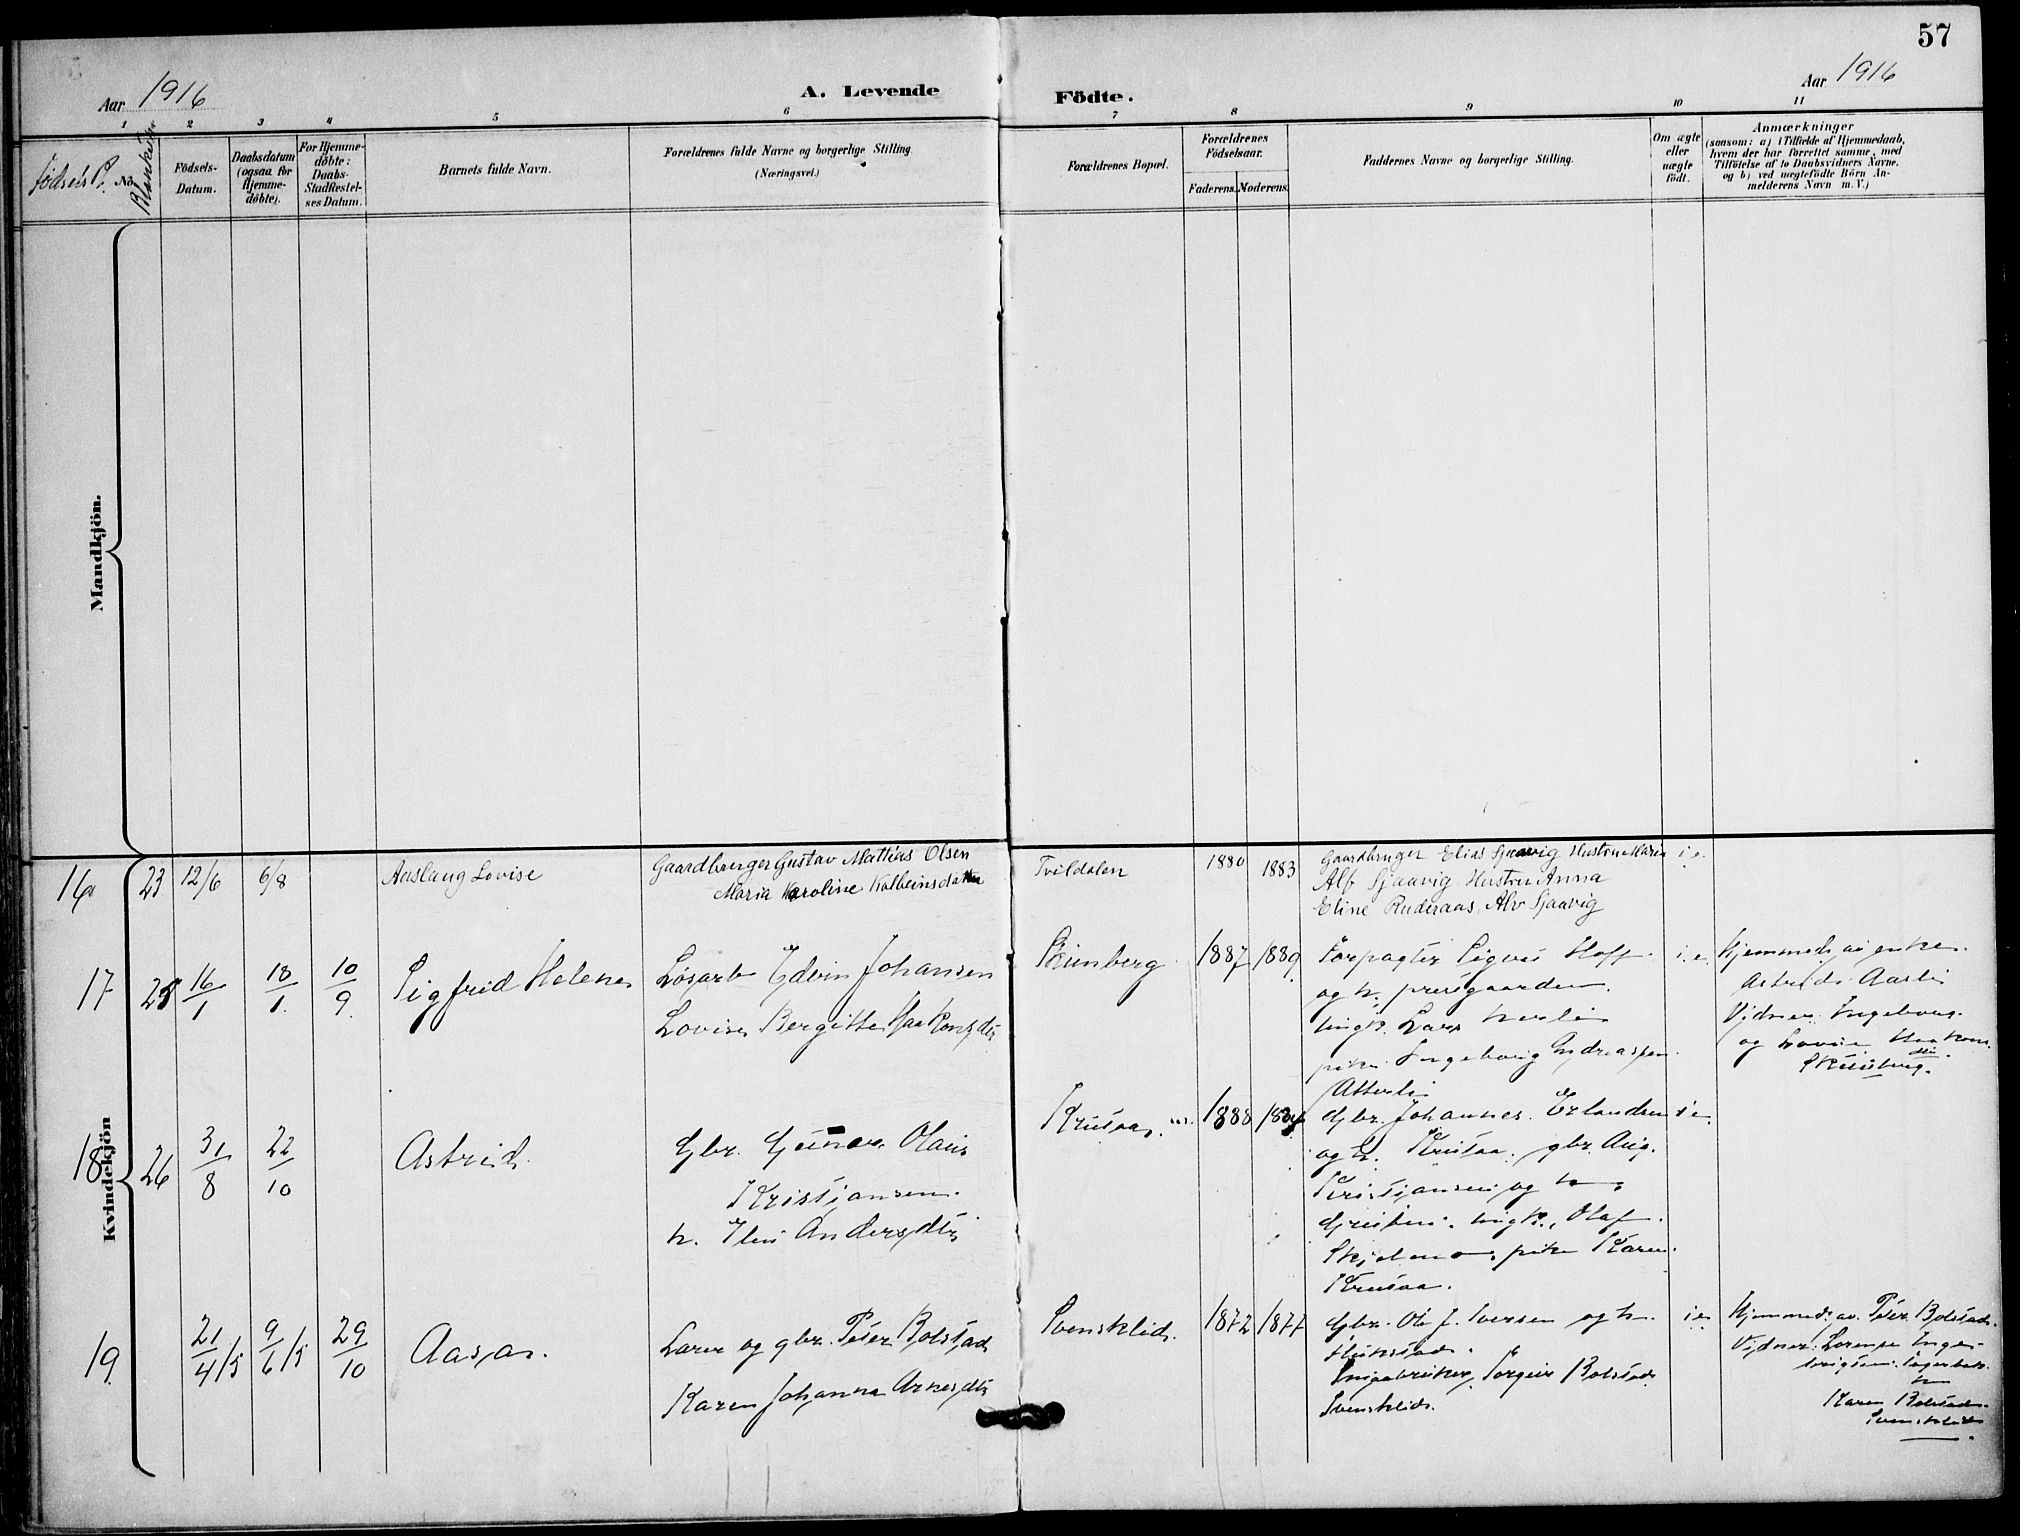 57
Aar 1916
A. Levende
Födte.
Aar 1916
1 2 3 4 5 6 7 8 9 10 11
No.
Födsels-
Datum.
Daabsdatum
(ogsaa for
Hjemme-
døbte).
For Hjemme-
døbte:
Daabs-
Stadfæstel-
ses Datum.
Barnets fulde Navn.
Forældrenes fulde Navne og borgerlige Stilling.
(Næringsvei.)
Forældrenes Bopæl.
Forældrenes
Födselsaar.
Faderens.
Moderens.
Faddernes Navne og borgerlige Stilling.
Om ægte
eller
uægte
født.
Anmærkninger
(saasom: a) i Tilfælde af Hjemmedaab,
hvem der har forrettet samme, med
Tilföielse af to Daabsvidners Navne.
og b) ved uægtefödte Börn An-
melderens Navn m. V.)
Mandkjön.
Kvindekjön
16 23 12/6 6/8
Aaslaug Lovise
Gaardbruger Gustav Mattias Olsen
Maria Karoline Kolbeinsdatter
Tvildalen
1880 1883
Gaardbruger Elias Sjaavig Hustru Maria
Alf Sjaavig Hustru Anna
Eline Ruderaas, Alv Sjaavig
i e.
17 25 16/1 18/1 10/9
Sigfrid Helene
Løsarb Edvin Johansen
Lovise Bergitte Haakonsdtr
1887 1889
Forpagter Sigurd Hoff
og h. prestgaarden.
ungk. Lars
pike Ingeborg Andreassen
i.e.
Hjemmed. av enke
Astrid Aasli
Vidner: Ingeborg
og Lovise Haakons
dtr
18 26 31/8 22/10
Astrid
Gbr. Gunnar Olaus
Kristiansen.
h. Andersdtr
Krutaa
1888
Gbr. Johannes Erlandsen
og h. Krutaa, gbr. Aug.
Kristiansen og h.
ungk. Olaf
pike Karen
Krutaa.
i e
19 21/4 15 9/6 15 29/10
Aasa
Lærer og gbr. Peter Bolstad
Karen Johanna Arnesdtr
Svensklid.
1872 1877
Gbr. Ole J. Iversen og h.
Torgeir Bolstad
Svensklid.
i e
Hjemmed. av Peter Bolstad.
Vidner: Lorense Inge-
brigtsen
Karen Bolstad
Svensklid